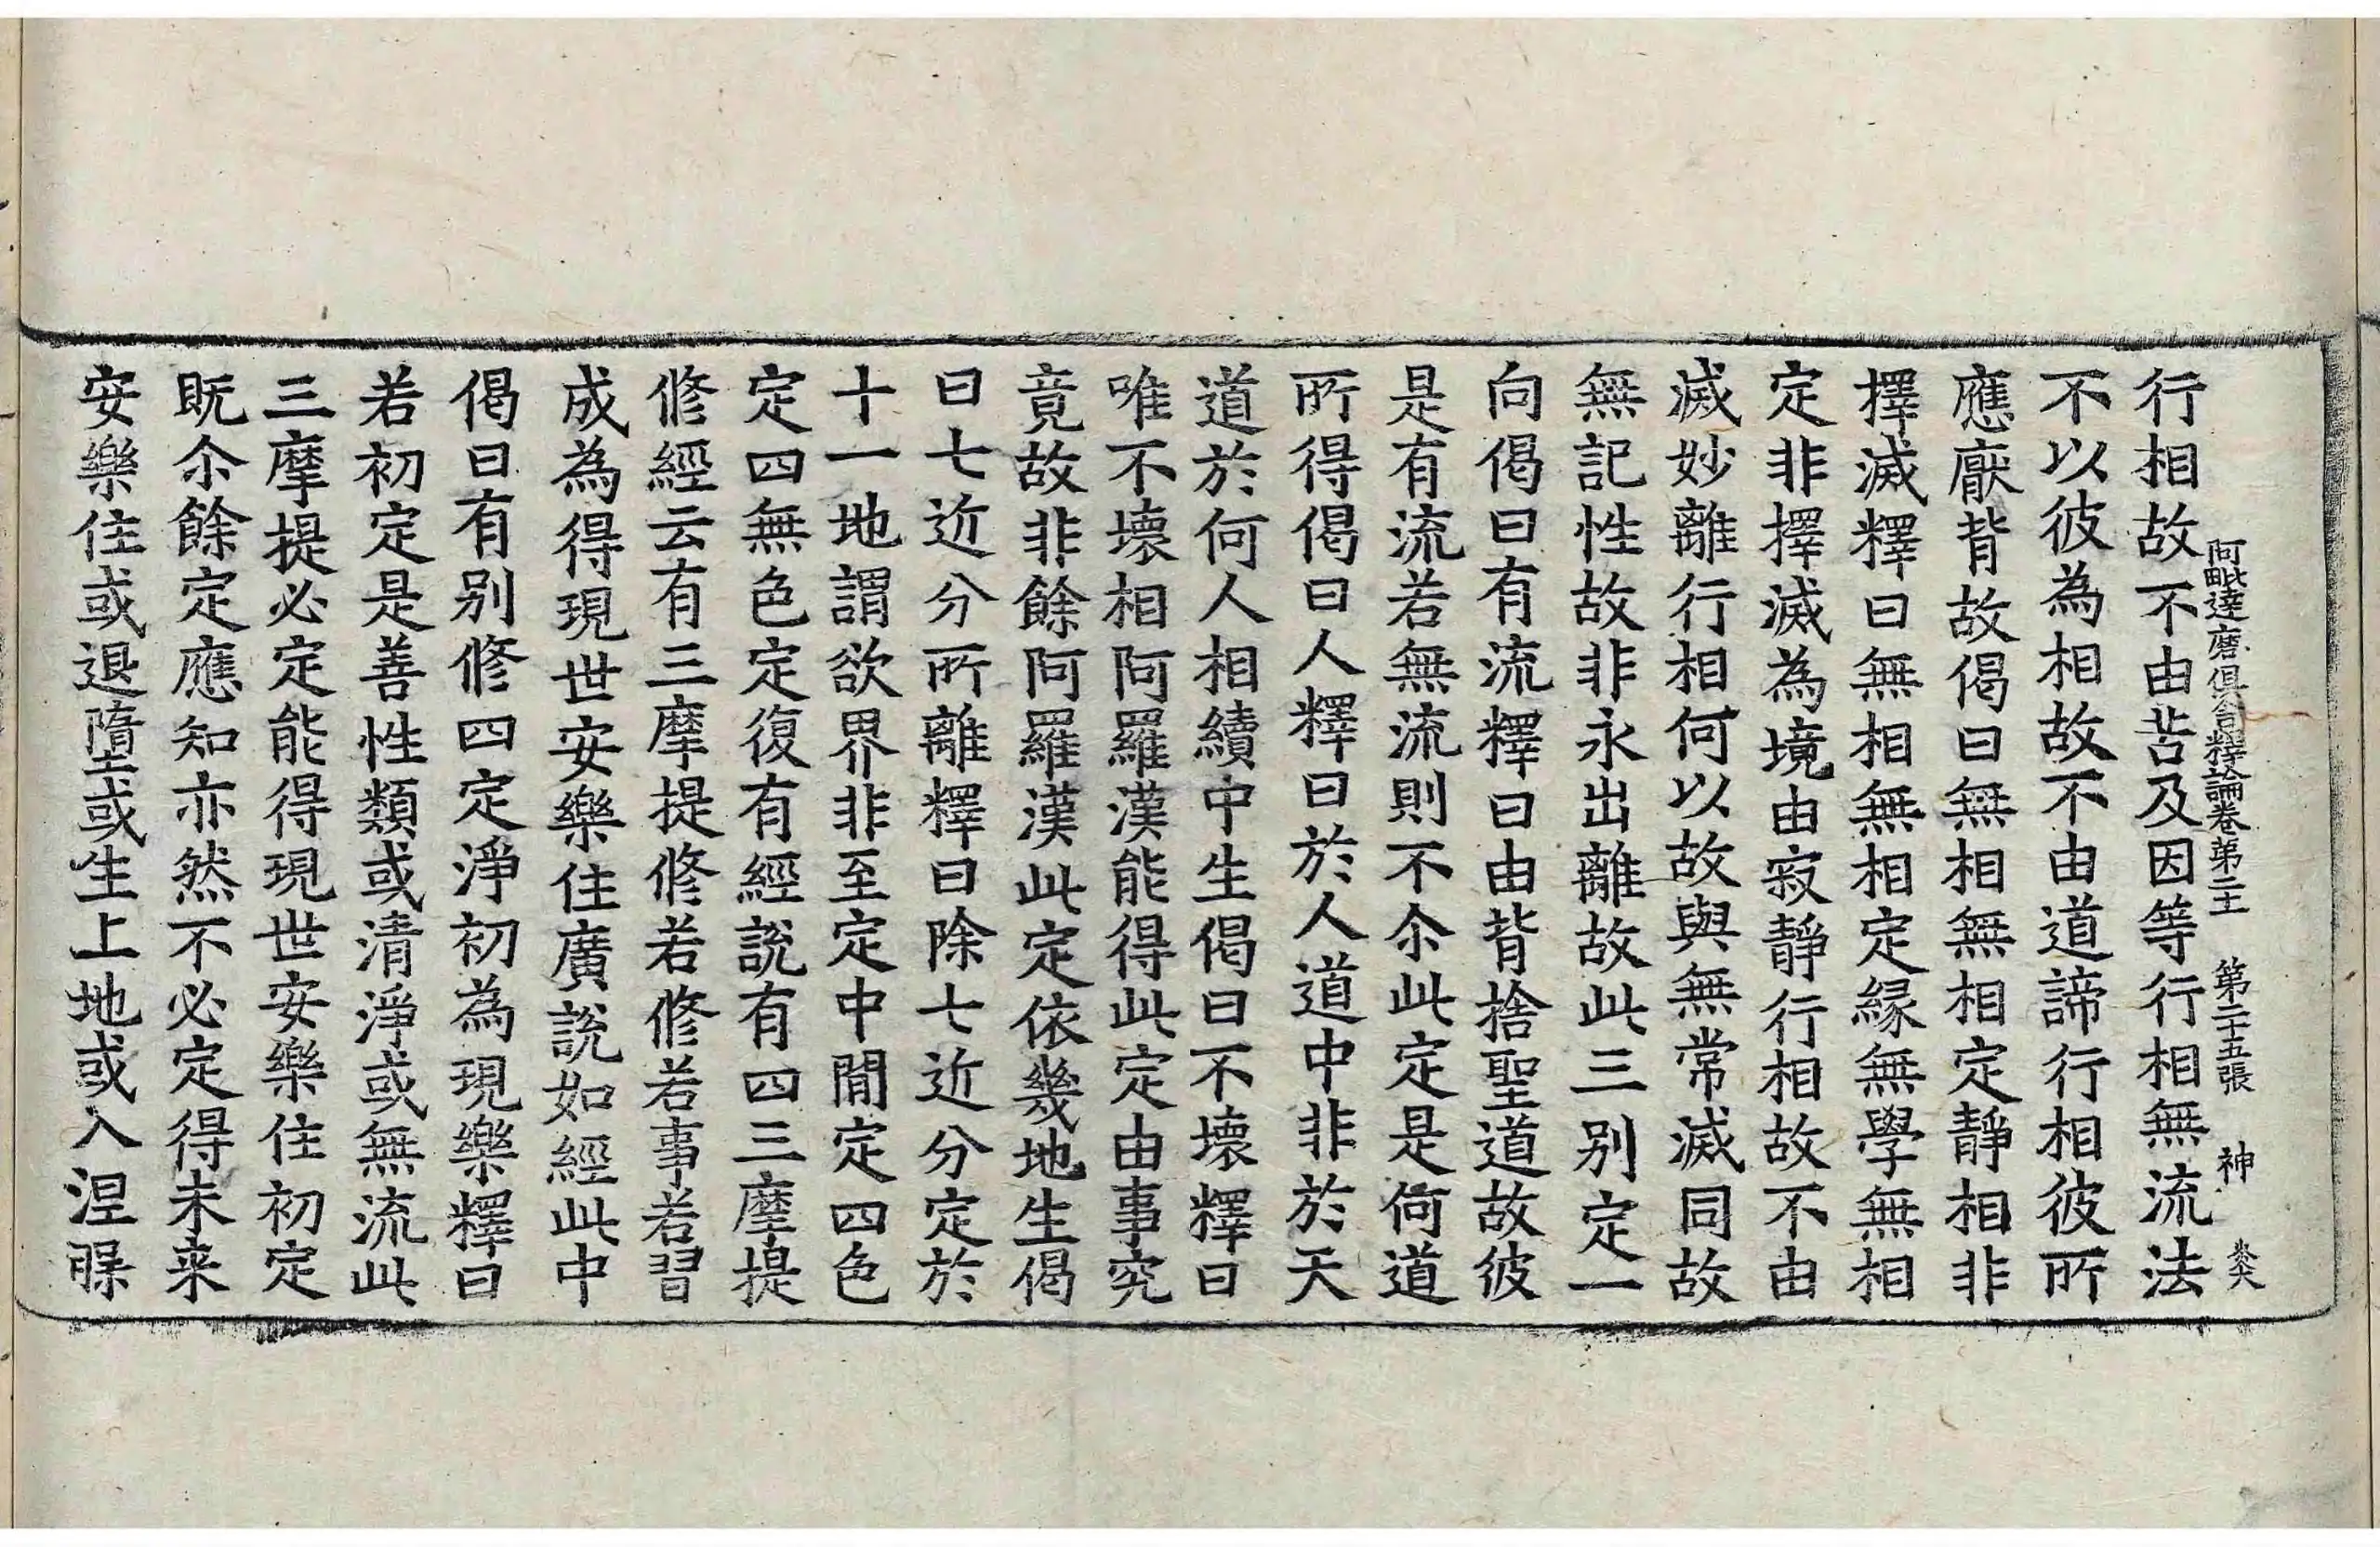 阿毗達磨俱舍釋論卷第二十 第二十五張 神
行相故不由苦及因等行相無流法
不以彼為相故不由道諦行相彼所
應厭背故偈曰無相無相定靜相非
擇滅釋曰無相無相定緣無學無相
定非擇滅為境由寂靜行相故不由
滅妙離行相何以故與無常滅同故
無記性故非永出離故此三別定一
向偈曰有流釋曰由背捨聖道故彼
是有流若無流則不尒此定是何道
所得偈曰人釋曰於人道中非於天
道於何人相續中生偈曰不壞釋曰
唯不壞相阿羅漢能得此定由事究
竟故非餘阿羅漢此定依幾地生偈
曰七近分所離釋曰除七近分定於
十一地謂欲界非至定中閒定四色
定四無色定復有經說有四三摩提
修經云有三摩提修若修若事若習
成為得現世安樂住廣說如經此中
偈曰有別修四定淨初為現樂釋曰
若初定是善性類或清淨或無流此
三摩提必定能得現世安樂住初定
既尒餘定應知亦然不必定得未来
安樂住或退墮或生上地或入涅槃